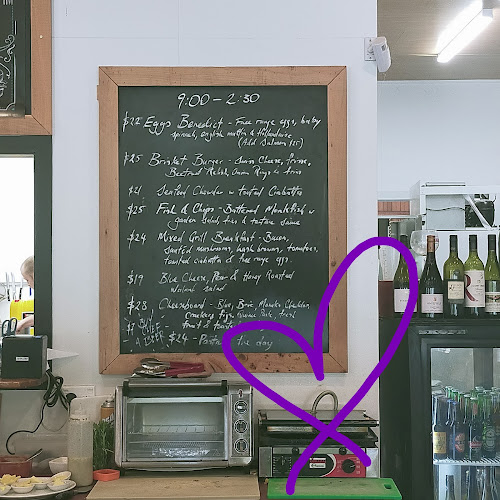 9:00 – 2:30
$22 Eggs Benedict – Free range eggs, barley
spinach, english muffin & Hollandaise
(Add Salmon $5)
$25 Brisket Burger – Swiss Cheese,
Beetroot Relish, Onion Rings & fries
$21 Seafood Chowder w toasted Ciabatta
$25 Fish & Chips – Battered Monkfish w
garden salad, fries & tartare sauce
$24 Mixed Grill Breakfast – Bacon,
sautéed mushrooms, hash browns, tomatoes,
toasted ciabatta & free range eggs.
$19 Blue Cheese, Pear & Honey Roasted
walnut salad
$28 Cheeseboard – Blue, Brie, Cheddar,
crackers, figs, Paste, fresh
fruit & toasted
A BEER $24 – Pasta the day